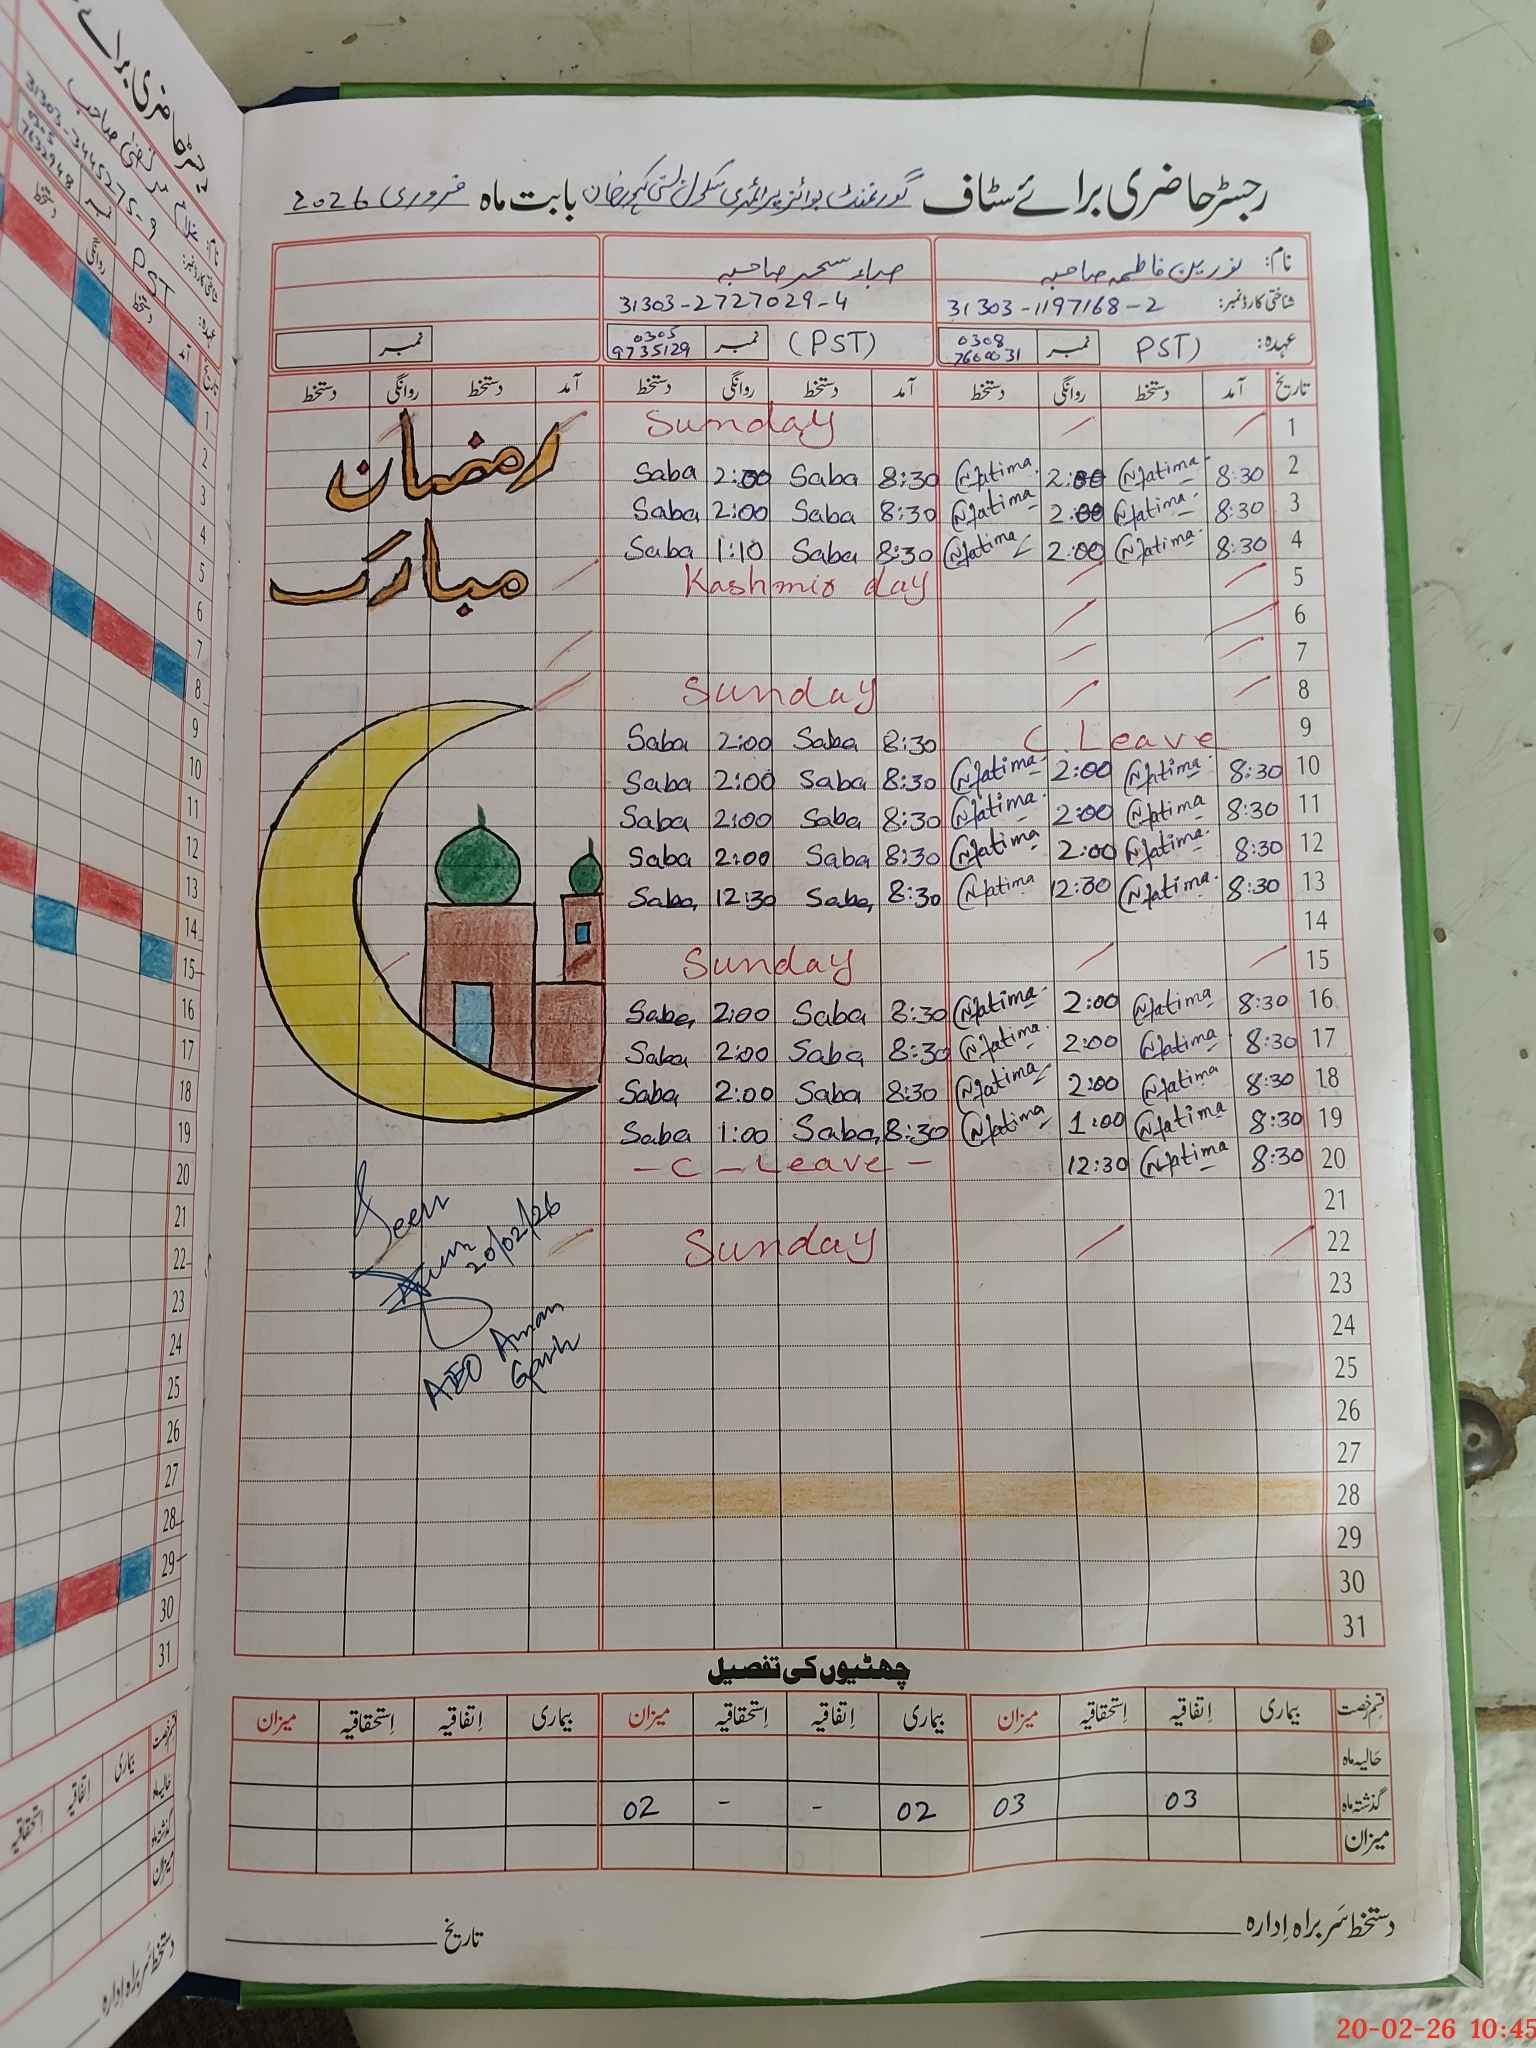 رجسٹر حاضری برائے سٹاف گورنمنٹ بوائز پرائمری سکول بستی کہور خان بابت ماہ فروری 2026
نام: نورین فاطمہ صاحبہ صباء سحر صاحبہ
شناختی کارڈ نمبر: 31303-1197168-2 31303-2727029-4
عہدہ: PST) نمبر 0308 7600031 (PST) نمبر 0305 9735129 نمبر
تاریخ آمد دستخط روانگی دستخط آمد دستخط روانگی دستخط آمد دستخط روانگی دستخط
1 Sunday
رمضان
2 8:30 N.Fatima 2:00 N.Fatima 8:30 Saba 2:00 Saba
3 8:30 N.Fatima 2:00 N.Fatima 8:30 Saba 2:00 Saba
4 8:30 N.Fatima 2:00 N.Fatima 8:30 Saba 1:10 Saba
مبارک
5 Kashmir day
6
7
8 Sunday
9 C. Leave 8:30 Saba 2:00 Saba
10 8:30 N.Fatima 2:00 N.Fatima 8:30 Saba 2:00 Saba
11 8:30 N.Fatima 2:00 N.Fatima 8:30 Saba 2:00 Saba
12 8:30 N.Fatima 2:00 N.Fatima 8:30 Saba 2:00 Saba
13 8:30 N.Fatima 12:30 N.Fatima 8:30 Saba 12:30 Saba
14
15 Sunday
16 8:30 N.Fatima 2:00 N.Fatima 8:30 Saba 2:00 Saba
17 8:30 N.Fatima 2:00 N.Fatima 8:30 Saba 2:00 Saba
18 8:30 N.Fatima 2:00 N.Fatima 8:30 Saba 2:00 Saba
19 8:30 N.Fatima 1:00 N.Fatima 8:30 Saba 1:00 Saba
20 8:30 N.Fatima 12:30 - C - Leave -
21
22 Sunday
Seen
20/02/26
AEO Aman
Garh
23
24
25
26
27
28
29
30
31
چھٹیوں کی تفصیل
قسم رخصت بیماری اتفاقیہ استحقاقیہ میزان بیماری اتفاقیہ استحقاقیہ میزان بیماری اتفاقیہ استحقاقیہ میزان
حالیہ ماہ
گذشتہ ماہ 03 03 02 - - 02
میزان
دستخط سربراہ ادارہ تاریخ
رجسٹر حاضری برائے
نام: غلام مرتضیٰ صاحب
شناختی کارڈ نمبر: 31303-3445275-9
عہدہ: PST نمبر 0305 7632948
تاریخ آمد دستخط روانگی دستخط
1
2
3
4
5
6
7
8
9
10
11
12
13
14
15
16
17
18
19
20
21
22
23
24
25
26
27
28
29
30
31
قسم رخصت بیماری اتفاقیہ استحقاقیہ
حالیہ ماہ
گذشتہ ماہ
میزان
دستخط سربراہ ادارہ
20-02-26 10:45